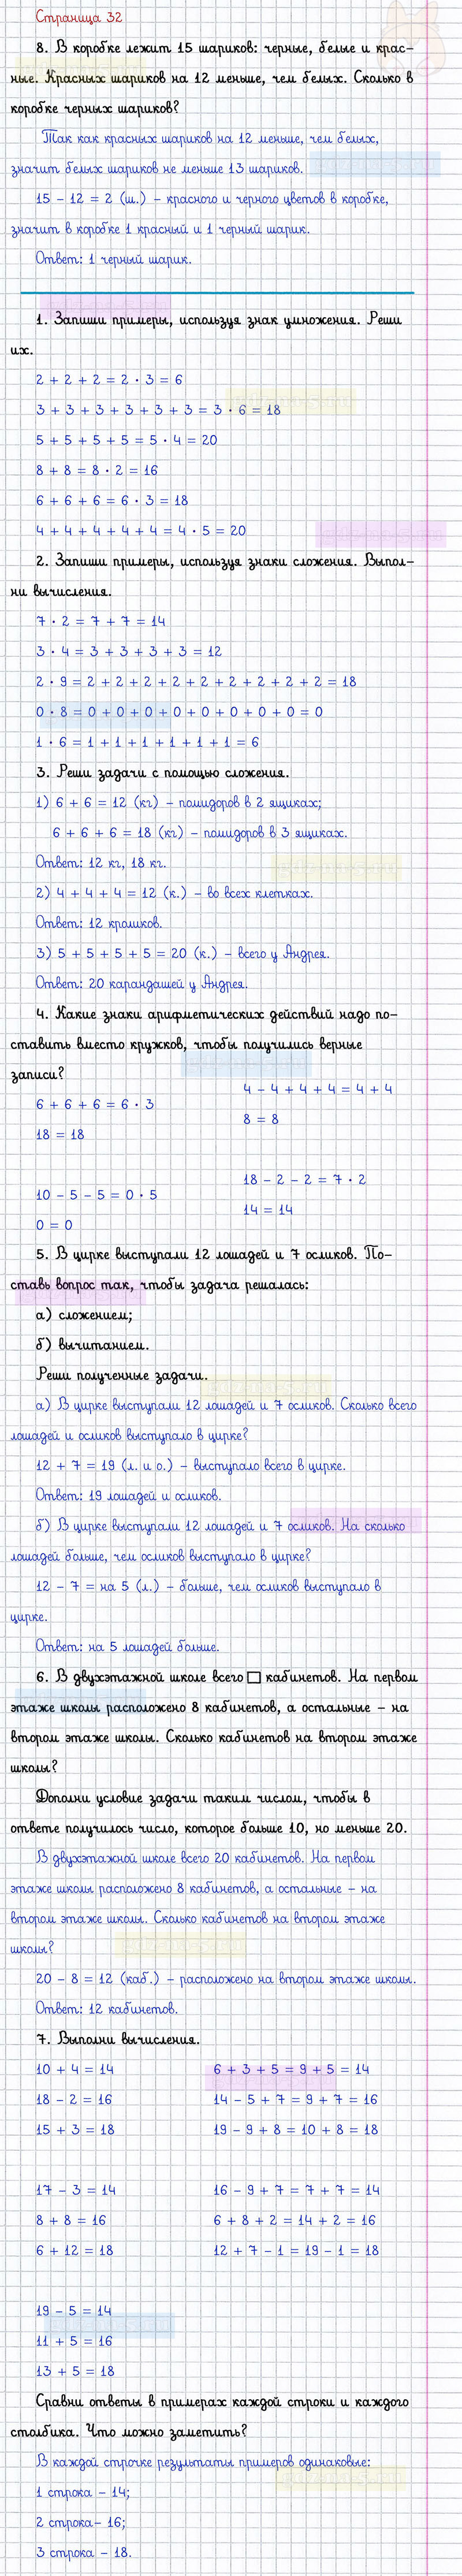 Страница 32
8. В коробке лежит 15 шариков: черные, белые и крас-
ные. Красных шариков на 12 меньше, чем белых. Сколько в
коробке черных шариков?
Так как красных шариков на 12 меньше, чем белых,
значит белых шариков не меньше 13 шариков.
15 - 12 = 2 (ш.) - красного и черного цветов в коробке,
значит в коробке 1 красный и 1 черный шарик.
Ответ: 1 черный шарик.
1. Запиши примеры, используя знак умножения. Реши
их.
2 + 2 + 2 = 2 · 3 = 6
3 + 3 + 3 + 3 + 3 + 3 = 3 · 6 = 18
5 + 5 + 5 + 5 = 5 · 4 = 20
8 + 8 = 8 · 2 = 16
6 + 6 + 6 = 6 · 3 = 18
4 + 4 + 4 + 4 + 4 = 4 · 5 = 20
2. Запиши примеры, используя знаки сложения. Выпол-
ни вычисления.
7 · 2 = 7 + 7 = 14
3 · 4 = 3 + 3 + 3 + 3 = 12
2 · 9 = 2 + 2 + 2 + 2 + 2 + 2 + 2 + 2 + 2 = 18
0 · 8 = 0 + 0 + 0 + 0 + 0 + 0 + 0 + 0 = 0
1 · 6 = 1 + 1 + 1 + 1 + 1 + 1 = 6
3. Реши задачи с помощью сложения.
1) 6 + 6 = 12 (кг) - помидоров в 2 ящиках;
6 + 6 + 6 = 18 (кг) - помидоров в 3 ящиках.
Ответ: 12 кг, 18 кг.
2) 4 + 4 + 4 = 12 (к.) - во всех клетках.
Ответ: 12 кроликов.
3) 5 + 5 + 5 + 5 = 20 (к.) - всего у Андрея.
Ответ: 20 карандашей у Андрея.
4. Какие знаки арифметических действий надо по-
ставить вместо кружков, чтобы получились верные
записи?
6 + 6 + 6 = 6 · 3
18 = 18
4 - 4 + 4 + 4 = 4 + 4
8 = 8
10 - 5 - 5 = 0 · 5
0 = 0
18 - 2 - 2 = 7 · 2
14 = 14
5. В цирке выступали 12 лошадей и 7 осликов. По-
ставь вопрос так, чтобы задача решалась:
а) сложением;
б) вычитанием.
Реши полученные задачи.
а) В цирке выступали 12 лошадей и 7 осликов. Сколько всего
лошадей и осликов выступало в цирке?
12 + 7 = 19 (л. и о.) - выступало всего в цирке.
Ответ: 19 лошадей и осликов.
б) В цирке выступали 12 лошадей и 7 осликов. На сколько
лошадей больше, чем осликов выступало в цирке?
12 - 7 = на 5 (л.) - больше, чем осликов выступало в
цирке.
Ответ: на 5 лошадей больше.
6. В двухэтажной школе всего □ кабинетов. На первом
этаже школы расположено 8 кабинетов, а остальные - на
втором этаже школы. Сколько кабинетов на втором этаже
школы?
Дополни условие задачи таким числом, чтобы в
ответе получилось число, которое больше 10, но меньше 20.
В двухэтажной школе всего 20 кабинетов. На первом
этаже школы расположено 8 кабинетов, а остальные - на
втором этаже школы. Сколько кабинетов на втором этаже
школы?
20 - 8 = 12 (каб.) - расположено на втором этаже школы.
Ответ: 12 кабинетов.
7. Выполни вычисления.
10 + 4 = 14
18 - 2 = 16
15 + 3 = 18
6 + 3 + 5 = 9 + 5 = 14
14 - 5 + 7 = 9 + 7 = 16
19 - 9 + 8 = 10 + 8 = 18
17 - 3 = 14
8 + 8 = 16
6 + 12 = 18
16 - 9 + 7 = 7 + 7 = 14
6 + 8 + 2 = 14 + 2 = 16
12 + 7 - 1 = 19 - 1 = 18
19 - 5 = 14
11 + 5 = 16
13 + 5 = 18
Сравни ответы в примерах каждой строки и каждого
столбика. Что можно заметить?
В каждой строчке результаты примеров одинаковые:
1 строка - 14;
2 строка- 16;
3 строка - 18.